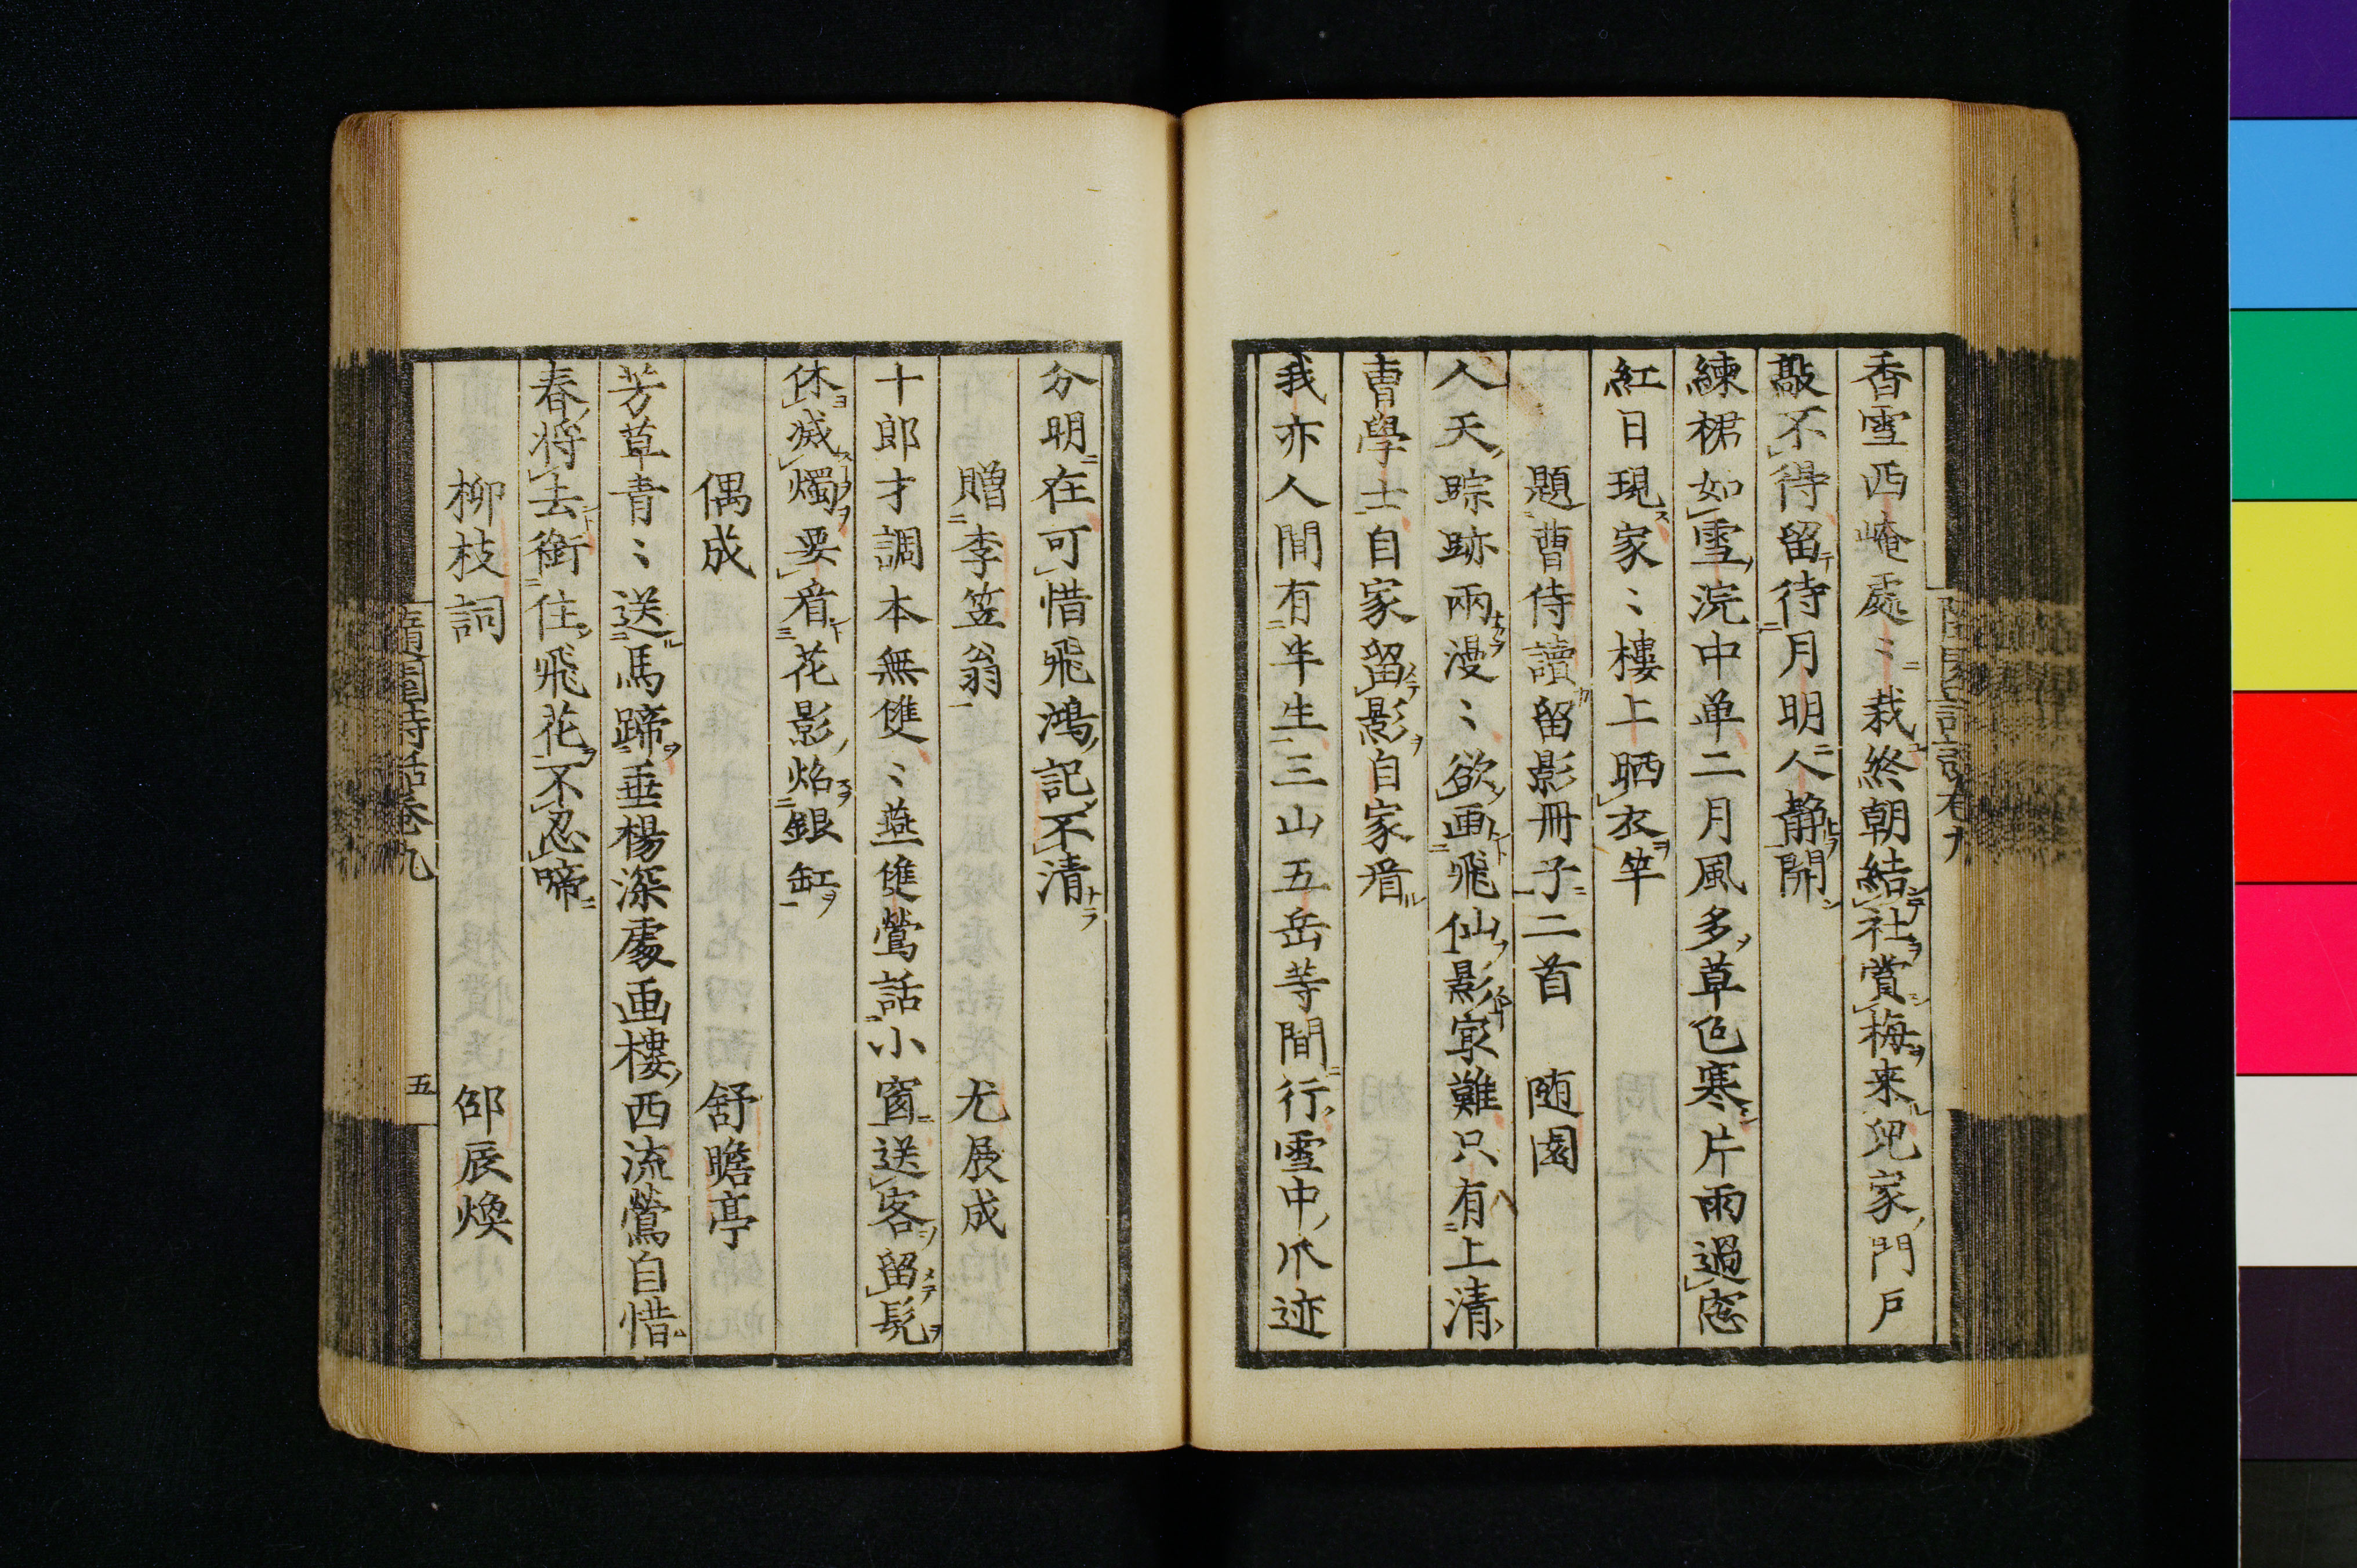 香雪西崦處〻栽終朝結社賞梅来児家門戸
敲不得留待月明人静開
練裙如雪浣中单二月風多草色寒片雨過窓
紅日現家〻樓上晒衣竿
題曹侍讀留影冊子二首　随園
人天踪跡兩漫〻欲画飛仙影㝡難只有上清
曺學士自家留影自家㸔
我亦人間有半生三山五岳等間行雪中爪迹
分明在可惜飛鴻記不清
贈李笠翁　尤展成
十郎才調本無雙〻燕雙鶯話小窗送客留髡
休滅燭要㸔花影焰銀缸
偶成　舒瞻亭
芳草青〻送馬蹄垂楊深處画樓西流鶯自惜
春将去銜住飛花不忍啼
柳枝詞　邵辰煥
隨園詩話卷九
五